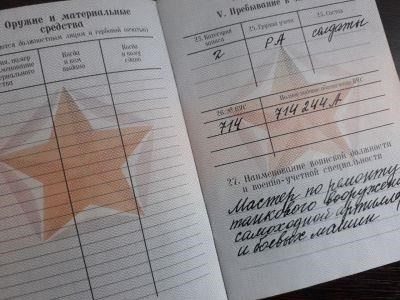 Оружие и материальные
средства
должностным лицом и гербовой печатью)
номер
Когда
и кем
выдано
Когда
и кому
сдано
V. Пребывание в
23. Категория
запаса
24. Группа учета
25. Состав
2
РА
солдаты
26. № ВУС
Полное кодовое обозначение ВУС
714
714244А
27. Наименование воинской должности
и военно-учетной специальности
Мастер по ремонту
танкового вооружения
самоходной артиллер
и боевых машин